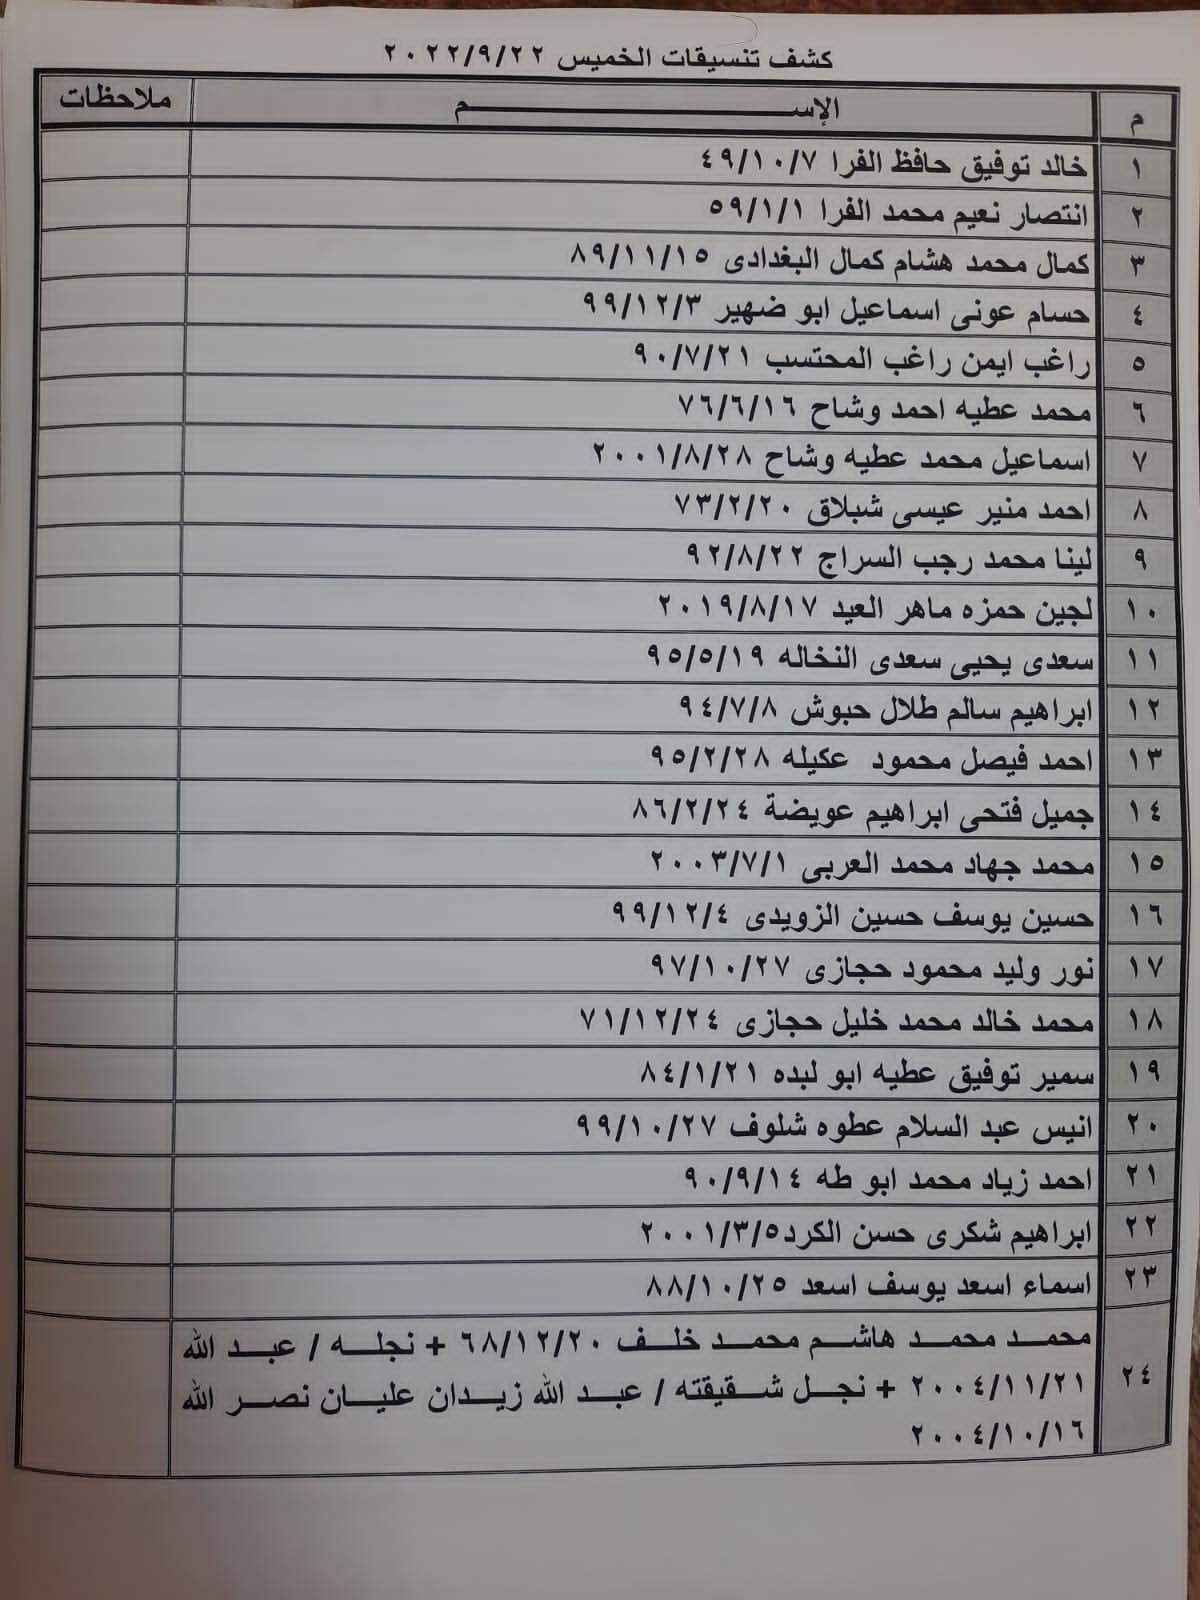 كشف تنسيقات الخميس ٢٠٢٢/٩/٢٢
م الإســـــــــــــم ملاحظات
١ خالد توفيق حافظ الفرا ٤٩/١٠/٧
٢ انتصار نعيم محمد الفرا ٥٩/١/١
٣ كمال محمد هشام كمال البغدادى ٨٩/١١/١٥
٤ حسام عونى اسماعيل ابو ضهير ٩٩/١٢/٣
٥ راغب ايمن راغب المحتسب ٩٠/٧/٢١
٦ محمد عطيه احمد وشاح ٧٦/٦/١٦
٧ اسماعيل محمد عطيه وشاح ٢٠٠١/٨/٢٨
٨ احمد منير عيسى شبلاق ٧٣/٢/٢٠
٩ لينا محمد رجب السراج ٩٢/٨/٢٢
١٠ لجين حمزه ماهر العيد ٢٠١٩/٨/١٧
١١ سعدى يحيى سعدى النخاله ٩٥/٥/١٩
١٢ ابراهيم سالم طلال حبوش ٩٤/٧/٨
١٣ احمد فيصل محمود عكيله ٩٥/٢/٢٨
١٤ جميل فتحى ابراهيم عويضة ٨٦/٢/٢٤
١٥ محمد جهاد محمد العربى ٢٠٠٣/٧/١
١٦ حسين يوسف حسين الزويدى ٩٩/١٢/٤
١٧ نور وليد محمود حجازى ٩٧/١٠/٢٧
١٨ محمد خالد محمد خليل حجازى ٧١/١٢/٢٤
١٩ سمير توفيق عطيه ابو لبده ٨٤/١/٢١
٢٠ انيس عبد السلام عطوه شلوف ٩٩/١٠/٢٧
٢١ احمد زياد محمد ابو طه ٩٠/٩/١٤
٢٢ ابراهيم شكرى حسن الكرد٢٠٠١/٣/٥
٢٣ اسماء اسعد يوسف اسعد ٨٨/١٠/٢٥
محمد محمد هاشم محمد خلف ٦٨/١٢/٢٠ + نجله / عبد الله
٢٤ ٢٠٠٤/١١/٢١ + نجل شقيقته / عبد الله زيدان عليان نصر الله
٢٠٠٤/١٠/١٦